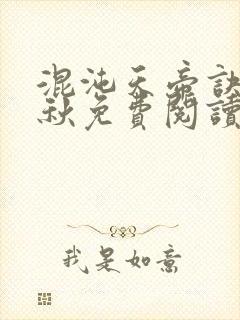 混沌天帝訣
秋免費閱讀
我是如意